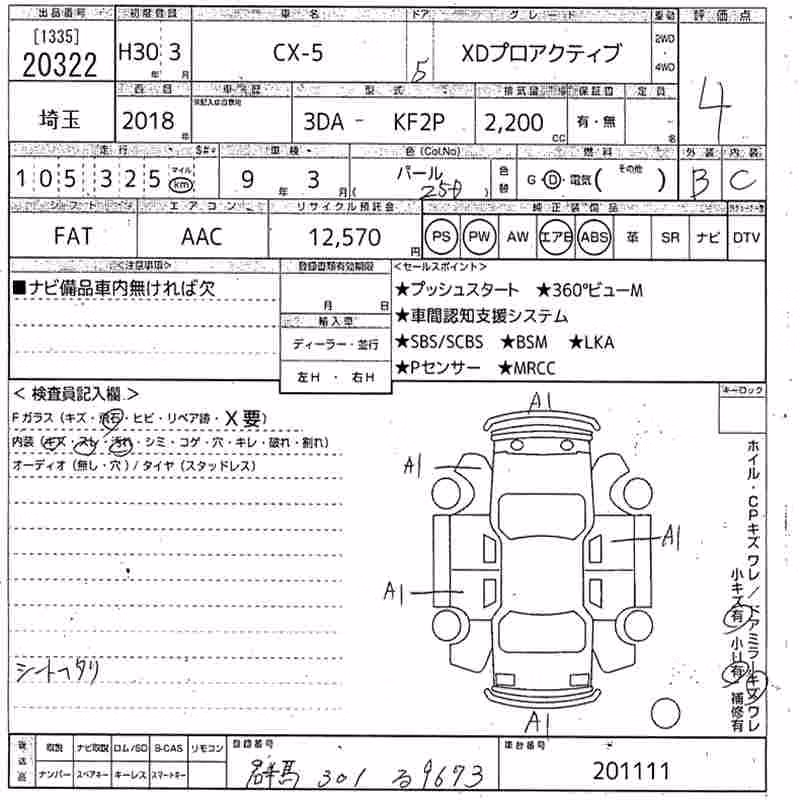 出品番号 初度登録 車名 ドア グレード 駆動 評価点
[1335] 20322 H30 年 3 月 CX-5 5 XDプロアクティブ 2WD・4WD 4
西暦 車歴 型式 排気量 保証書 定員
埼玉 2018 年 3DA - KF2P 2,200 cc 有・無 名
走行 車検 色(Col.No) 燃料 外装 内装
105325 マイル km 9 年 3 月 パール ( ) 色替 G・D・電気( その他 ) B C
シフト エアコン リサイクル預託金 純正装備品
FAT AAC 12,570 円 PS PW AW エアB ABS 革 SR ナビ DTV
<注意事項> 登録書類有効期限 <セールスポイント>
■ナビ備品車内無ければ欠
月 日
輸入車
ディーラー・並行
左H・右H
★プッシュスタート ★360°ビューM
★車間認知支援システム
★SBS/SCBS ★BSM ★LKA
★Pセンサー ★MRCC
<検査員記入欄.>
Fガラス(キズ・飛石・ヒビ・リペア跡・X要)
内装(キズ・スレ・汚れ・シミ・コゲ・穴・キレ・破れ・割れ)
オーディオ(無し・穴)/タイヤ(スタッドレス)
シートヘタリ
キーロック
A1
A1
A1
A1
A1
ホイル・CPキズワレ/ドアミラーキズワレ
小キズ有 小凹有 補修有
後送品 取説 ナビ取説 ロム/SD B-CAS リモコン
ナンバー スペアキー キーレス スマートキー
登録番号
群馬 301 る 9673
車台番号
201111